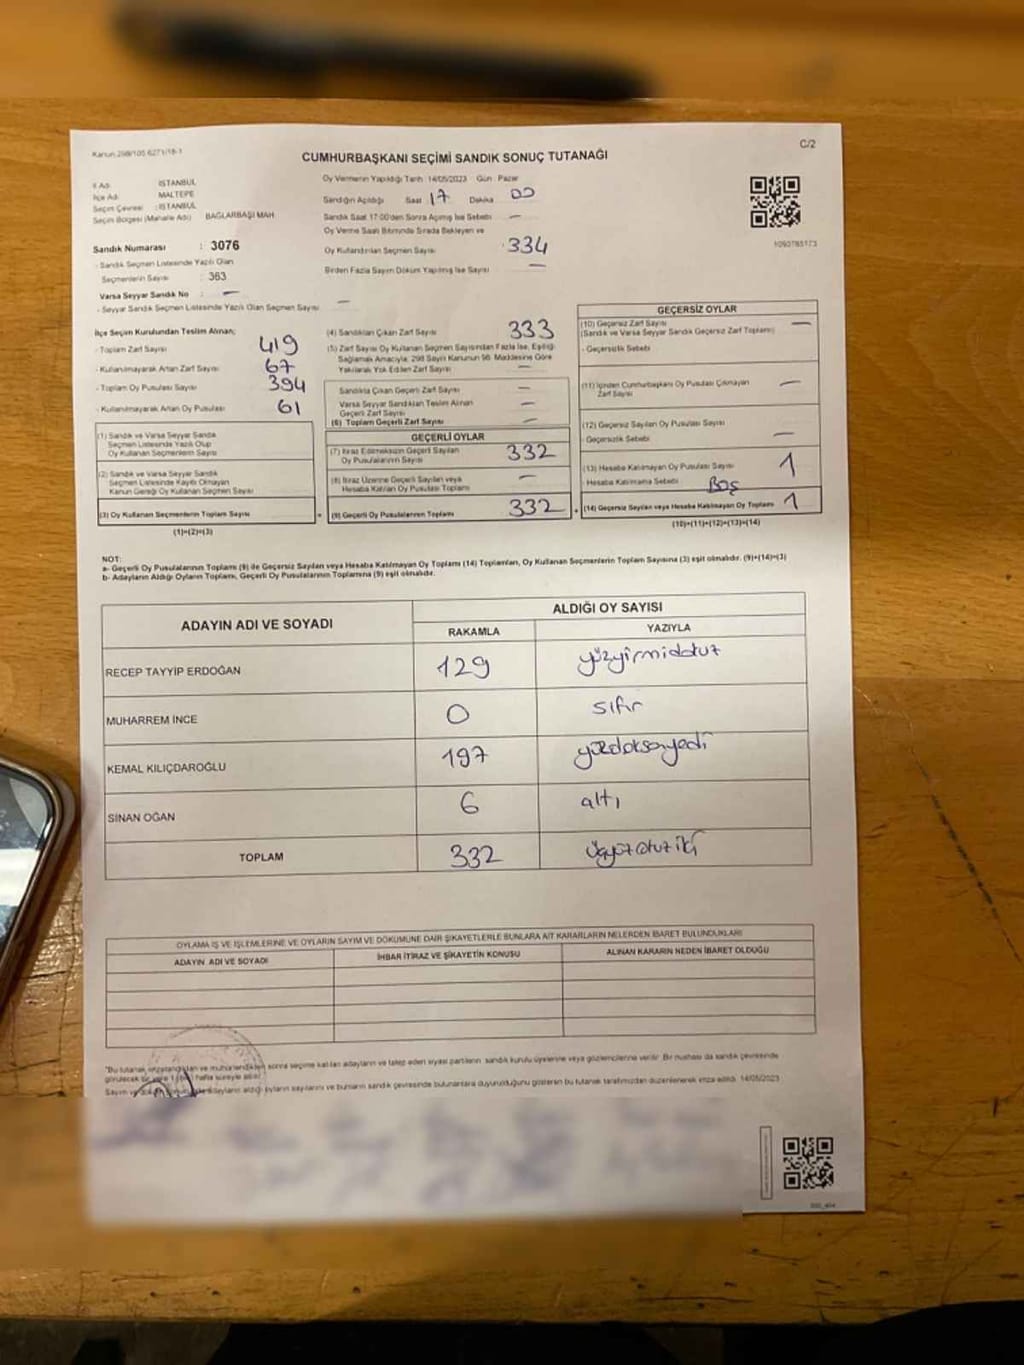 Kanun:298/105 6271/18-1
C/2
CUMHURBAŞKANI SEÇİMİ SANDIK SONUÇ TUTANAĞI
İl Adı : İSTANBUL
İlçe Adı : MALTEPE
Seçim Çevresi : İSTANBUL
Seçim Bölgesi (Mahalle Adı) BAĞLARBAŞI MAH.
Sandık Numarası : 3076
- Sandık Seçmen Listesinde Yazılı Olan
Seçmenlerin Sayısı : 363
Varsa Seyyar Sandık No : —
- Seyyar Sandık Seçmen Listesinde Yazılı Olan Seçmen Sayısı —
Oy Vermenin Yapıldığı Tarih: 14/05/2023 Gün: Pazar
Sandığın Açıldığı Saat 17 Dakika 00
Sandık Saat 17:00'den Sonra Açılmış İse Sebebi —
Oy Verme Saati Bitiminde Sırada Bekleyen ve
Oy Kullandırılan Seçmen Sayısı 334
Birden Fazla Sayım Döküm Yapılmış İse Sayısı —
1093785173
İlçe Seçim Kurulundan Teslim Alınan;
- Toplam Zarf Sayısı 419
- Kullanılmayarak Artan Zarf Sayısı 67
- Toplam Oy Pusulası Sayısı 394
- Kullanılmayarak Artan Oy Pusulası 61
(1) Sandık ve Varsa Seyyar Sandık
Seçmen Listesinde Yazılı Olup
Oy Kullanan Seçmen Sayısı
(2) Sandık ve Varsa Seyyar Sandık
Seçmen Listesinde Kayıtlı Olmayan
Kanun Gereği Oy Kullanan Seçmen Sayısı
(3) Oy Kullanan Seçmenlerin Toplam Sayısı
(1)+(2)=(3)
(4) Sandıktan Çıkan Zarf Sayısı 333
(5) Zarf Sayısı Oy Kullanan Seçmen Sayısından Fazla İse, Eşitliği
Sağlamak Amacıyla; 298 Sayılı Kanunun 98. Maddesine Göre
Yakılarak Yok Edilen Zarf Sayısı —
Sandıkta Çıkan Geçerli Zarf Sayısı —
Varsa Seyyar Sandıktan Teslim Alınan
Geçerli Zarf Sayısı —
(6) Toplam Geçerli Zarf Sayısı —
GEÇERLİ OYLAR
(7) İtiraz Edilmeksizin Geçerli Sayılan
Oy Pusulalarının Sayısı 332
(8) İtiraz Üzerine Geçerli Sayılan veya
Hesaba Katılan Oy Pusulası Toplamı —
(9) Geçerli Oy Pusulalarının Toplamı 332
GEÇERSİZ OYLAR
(10) Geçersiz Zarf Sayısı —
(Sandık ve Varsa Seyyar Sandık Geçersiz Zarf Toplamı)
- Geçersizlik Sebebi
(11) İçinden Cumhurbaşkanı Oy Pusulası Çıkmayan
Zarf Sayısı —
(12) Geçersiz Sayılan Oy Pusulası Sayısı
- Geçersizlik Sebebi —
(13) Hesaba Katılmayan Oy Pusulası Sayısı 1
- Hesaba Katılmama Sebebi Boş
(14) Geçersiz Sayılan veya Hesaba Katılmayan Oy Toplamı 1
(10)+(11)+(12)+(13)=(14)
NOT:
a- Geçerli Oy Pusulalarının Toplamı (9) ile Geçersiz Sayılan veya Hesaba Katılmayan Oy Toplamı (14) Toplamları, Oy Kullanan Seçmenlerin Toplam Sayısına (3) eşit olmalıdır. (9)+(14)=(3)
b- Adayların Aldığı Oyların Toplamı, Geçerli Oy Pusulalarının Toplamına (9) eşit olmalıdır.
ADAYIN ADI VE SOYADI
ALDIĞI OY SAYISI
RAKAMLA YAZIYLA
RECEP TAYYİP ERDOĞAN 129 yüzyirmidokuz
MUHARREM İNCE 0 sıfır
KEMAL KILIÇDAROĞLU 197 yüzdoksanyedi
SİNAN OĞAN 6 altı
TOPLAM 332 üçyüzotuziki
OYLAMA İŞ VE İŞLEMLERİNE VE OYLARIN SAYIM VE DÖKÜMÜNE DAİR ŞİKAYETLERLE BUNLARA AİT KARARLARIN NELERDEN İBARET BULUNDUKLARI
ADAYIN ADI VE SOYADI İHBAR İTİRAZ VE ŞİKAYETİN KONUSU ALINAN KARARIN NEDEN İBARET OLDUĞU
"Bu tutanak imzalandıktan ve mühürlendikten sonra seçime katılan adayların ve talep eden siyasi partilerin sandık kurulu üyelerine veya gözlemcilerine verilir. Bir nüshası da sandık çevresinde
görülecek bir yere 1 (bir) hafta süreyle asılır.
adayların aldığı oyların sayılarını ve bunların sandık çevresinde bulunanlara duyurulduğunu gösteren bu tutanak tarafımızdan düzenlenerek imza edildi. 14/05/2023